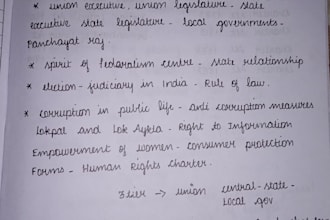 * union executive, union legislature - state
executive state legislature - local governments -
Panchayat raj.
* spirit of federatism centre - state relationship
* election - judiciary in India - Rule of law.
* corruption in public life - anti corruption measures
Lokpal and Lok Aykta - Right to Information
Empowerment of women - consumer protection
Forms - Human Rights charter.
3 tier → union central - state -
Local gov